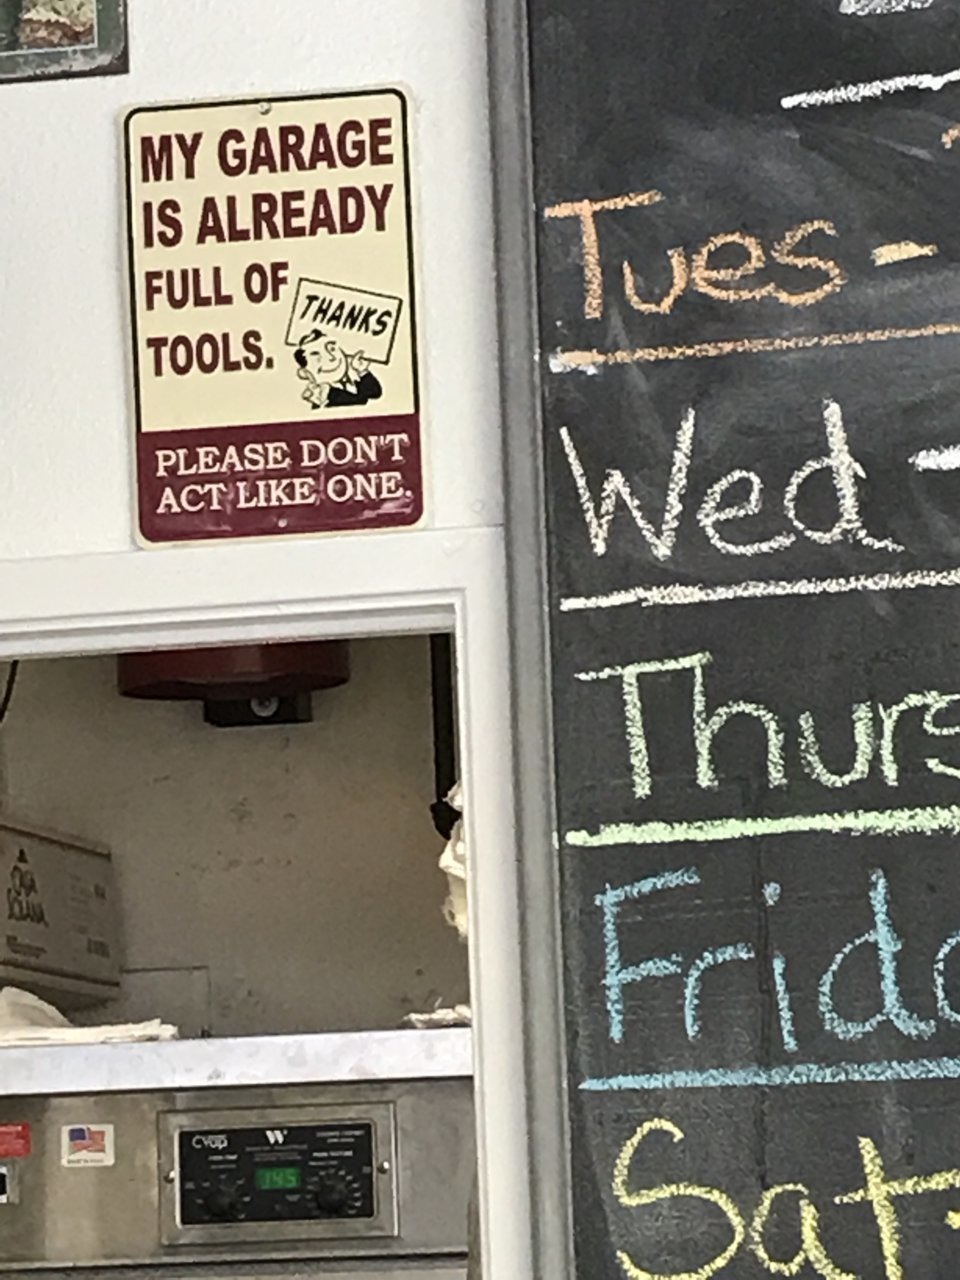 MY GARAGE
IS ALREADY
FULL OF
TOOLS.
THANKS
PLEASE DON'T
ACT LIKE ONE.
Tues -
Wed -
Thurs
Frida
Sat -
CASA
SOLANA
CVap
145